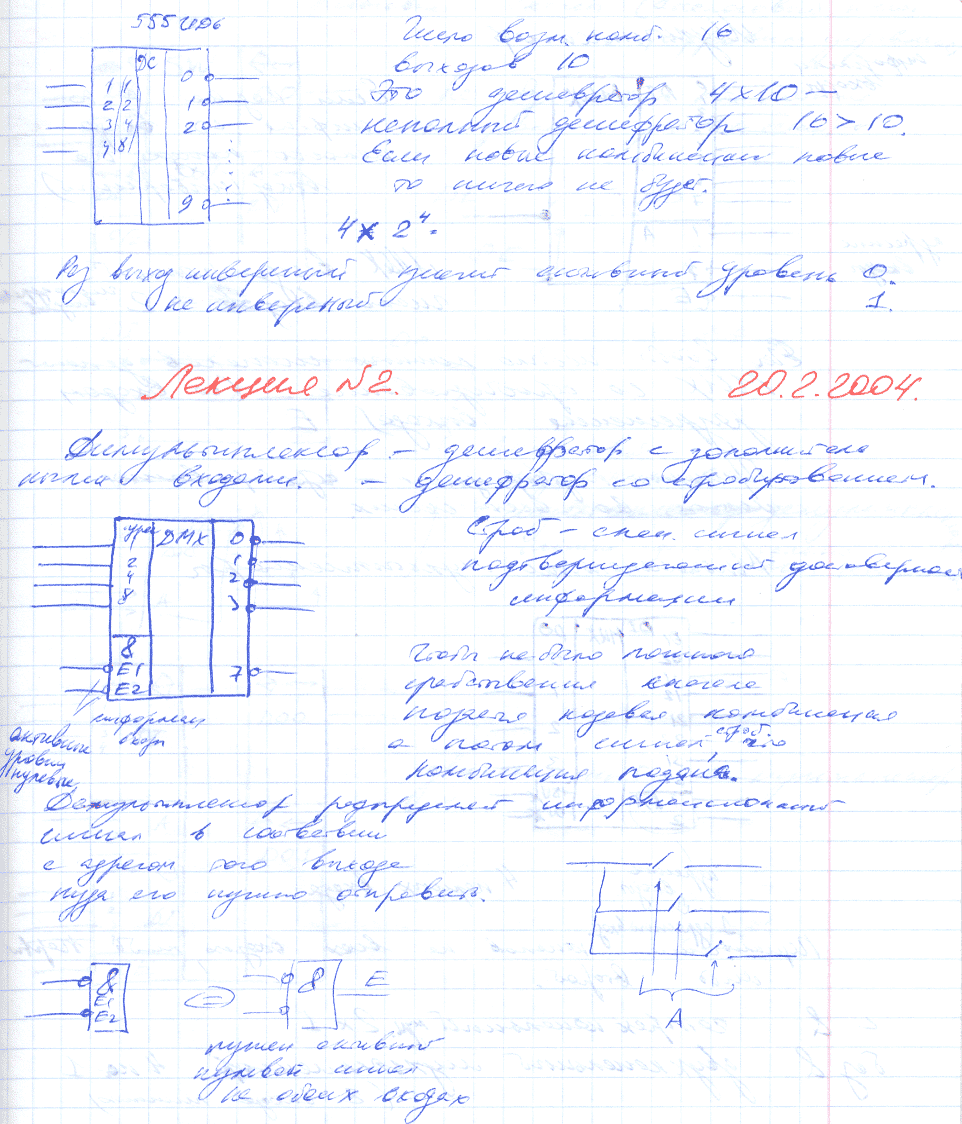 555ИД6
Число возм. комб. 16
выходов 10
Это дешефратор 4x10 —
неполный дешифратор 16 > 10.
Если новые комбинации
то ничего не будет.
DC
1 1
2 2
3 4
4 8
0
1
2
9
4 x 2⁴.
Раз выход инверсный значит активный уровень 0.
не инверсный 1.
Лекция №2. 20.2.2004.
Димультиплексор – дешефратор с дополнитель
ными входами. – дешифратор со стробированием.
DMX
1
2
4
8
&
E1
E2
0
1
2
3
7
Строб – спец. сигнал
подтверждающий достоверность
информации
Чтобы не было ложного
срабатывания сначала
подается кодовая комбинация
а потом сигнал строб что
комбинация подана.
информац
входы
активные
уровни
нулевые
Демультиплексор распределяет информационный
сигнал в соответствии
с адресом того выхода
куда его нужно отправить.
A
&
E1
E2
=
&
E
нужен активный
нулевой сигнал
на обоих входах